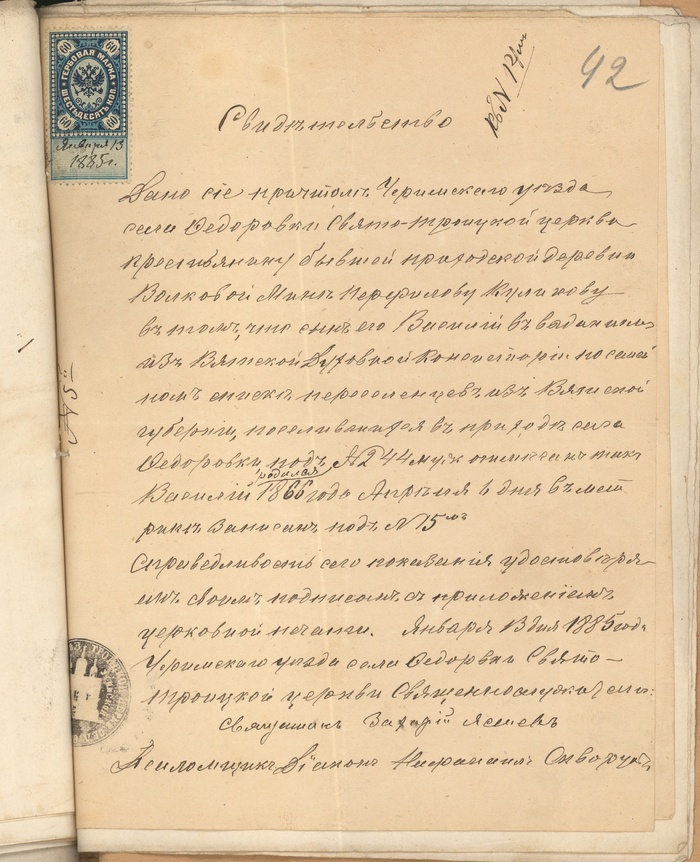 42
къ № 12
60 60
ГЕРБОВАЯ МАРКА
ШЕСТЬДЕСЯТЪ КОП.
60 60
Января 13
1885 г.
Свидѣтельство
Дано сіе причтомъ Уфимскаго уѣзда
села Ѳедоровки Свято-Троицкой церкви
крестьянину бывшей приходской деревни
Волковой Куликову
въ томъ, что сынъ его Василій въ
изъ Вятской Духовной Консисторіи посемей
номъ спискѣ переселенцевъ изъ Вятской
губерніи, поселившихся въ приходѣ села
Ѳедоровки подъ № 244 такъ
родился
Василій 1866 года Апрѣля дня въ мет
рикѣ записанъ подъ № 15мъ
Справедливость сего показанія удостовѣря
емъ своимъ подписомъ съ приложеніемъ
церковной печати. Января 13 дня 1885 года
Уфимскаго уѣзда села Ѳедоровки Свято-
Троицкой церкви Священнослужители:
Священникъ Захарій
Псаломщикъ Діаконъ